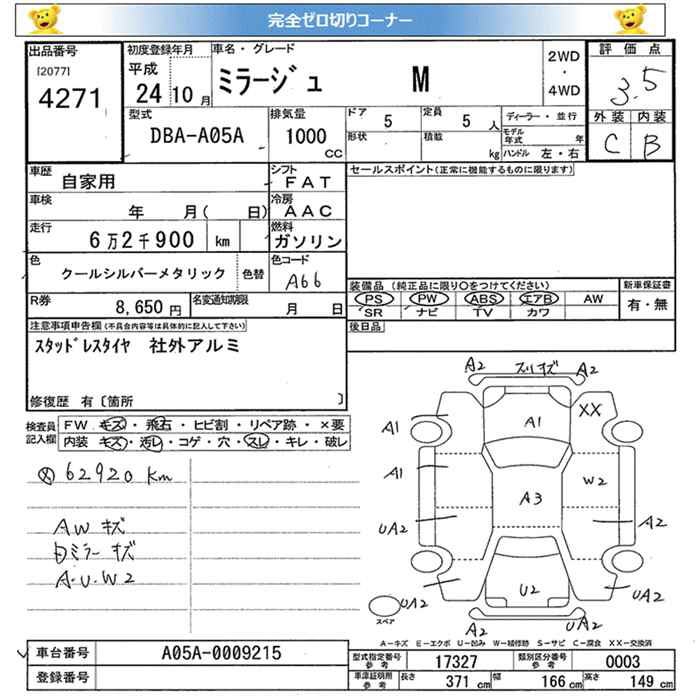 完全ゼロ切りコーナー
出品番号
[2077]
4271
初度登録年月
平成
24 10 月
車名・グレード
ミラージュ M
2WD
・
4WD
評価点
3.5
外装 内装
C B
型式
DBA-A05A
排気量
1000 CC
ドア 5
定員 5 人
形状
積載 kg
ディーラー・並行
モデル年式 年
ハンドル 左・右
車歴
自家用
シフト
FAT
車検
年 月( 日)
冷房
AAC
走行
6万2千900 km
燃料
ガソリン
色
クールシルバーメタリック
色替
色コード
A66
R券
8,650 円
名変通知期限
月 日
セールスポイント(正常に機能するものに限ります)
装備品 (純正品に限り○をつけてください)
PS PW ABS エアB AW
SR ナビ TV カワ
新車保証書
有・無
後日品
注意事項申告欄(不具合内容等は具体的に記入して下さい)
スタッドレスタイヤ 社外アルミ
修復歴 有〔箇所 〕
検査員記入欄
FW キズ・飛石・ヒビ割・リペア跡・×要
内装 キズ・汚レ・コゲ・穴・スレ・キレ・破レ
62920 km
AW キズ
ミラー キズ
A・U・W2
A2 スリキズ A2
A1 A1 XX
A1 W2
A3
UA2 A2
U2
UA2 UA2
スペア
A2 UA2
A-キズ E-エクボ U-凹み W-補修跡 S-サビ C-腐食 XX-交換済
車台番号
A05A-0009215
登録番号
型式指定番号参考 17327
類別区分番号参考 0003
車庫証明用参考 長さ 371 cm 幅 166 cm 高さ 149 cm